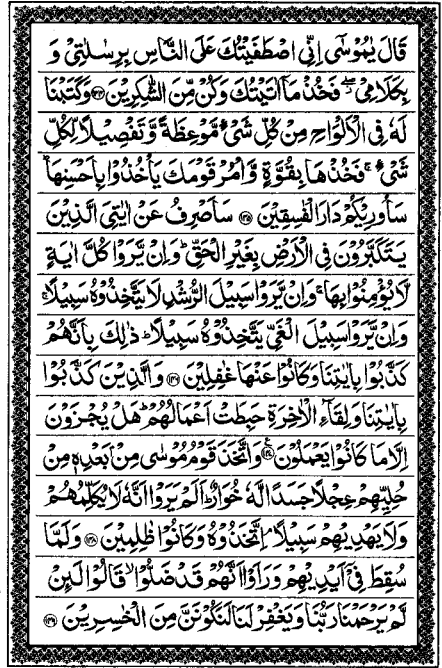 قَالَ يٰمُوْسٰۤى اِنِّى اصْطَفَيْتُكَ عَلَى النَّاسِ بِرِسٰلٰتِىْ وَ
بِكَلَامِىْ ۖ فَخُذْ مَاۤ اٰتَيْتُكَ وَكُنْ مِّنَ الشّٰكِرِيْنَ ﴿۱۴۴﴾ وَكَتَبْنَا
لَهٗ فِى الْاَلْوَاحِ مِنْ كُلِّ شَىْءٍ مَّوْعِظَةً وَّتَفْصِيْلًا لِّكُلِّ
شَىْءٍ ۚ فَخُذْهَا بِقُوَّةٍ وَّاْمُرْ قَوْمَكَ يَاْخُذُوْا بِاَحْسَنِهَا ؕ
سَاُورِيْكُمْ دَارَ الْفٰسِقِيْنَ ﴿۱۴۵﴾ سَاَصْرِفُ عَنْ اٰيٰتِىَ الَّذِيْنَ
يَتَكَبَّرُوْنَ فِى الْاَرْضِ بِغَيْرِ الْحَقِّ ؕ وَاِنْ يَّرَوْا كُلَّ اٰيَةٍ
لَّا يُؤْمِنُوْا بِهَا ۚ وَاِنْ يَّرَوْا سَبِيْلَ الرُّشْدِ لَا يَتَّخِذُوْهُ سَبِيْلًا ۚ
وَاِنْ يَّرَوْا سَبِيْلَ الْغَىِّ يَتَّخِذُوْهُ سَبِيْلًا ؕ ذٰلِكَ بِاَنَّهُمْ
كَذَّبُوْا بِاٰيٰتِنَا وَكَانُوْا عَنْهَا غٰفِلِيْنَ ﴿۱۴۶﴾ وَالَّذِيْنَ كَذَّبُوْا
بِاٰيٰتِنَا وَلِقَآءِ الْاٰخِرَةِ حَبِطَتْ اَعْمَالُهُمْ ؕ هَلْ يُجْزَوْنَ
اِلَّا مَا كَانُوْا يَعْمَلُوْنَ ﴿۱۴۷﴾ وَاتَّخَذَ قَوْمُ مُوْسٰى مِنْۢ بَعْدِهٖ مِنْ
حُلِيِّهِمْ عِجْلًا جَسَدًا لَّهٗ خُوَارٌ ؕ اَلَمْ يَرَوْا اَنَّهٗ لَا يُكَلِّمُهُمْ
وَلَا يَهْدِيْهِمْ سَبِيْلًا ۘ اِتَّخَذُوْهُ وَكَانُوْا ظٰلِمِيْنَ ﴿۱۴۸﴾ وَلَمَّا
سُقِطَ فِىْۤ اَيْدِيْهِمْ وَرَاَوْا اَنَّهُمْ قَدْ ضَلُّوْا ۙ قَالُوْا لَئِنْ
لَّمْ يَرْحَمْنَا رَبُّنَا وَيَغْفِرْ لَنَا لَنَكُوْنَنَّ مِنَ الْخٰسِرِيْنَ ﴿۱۴۹﴾